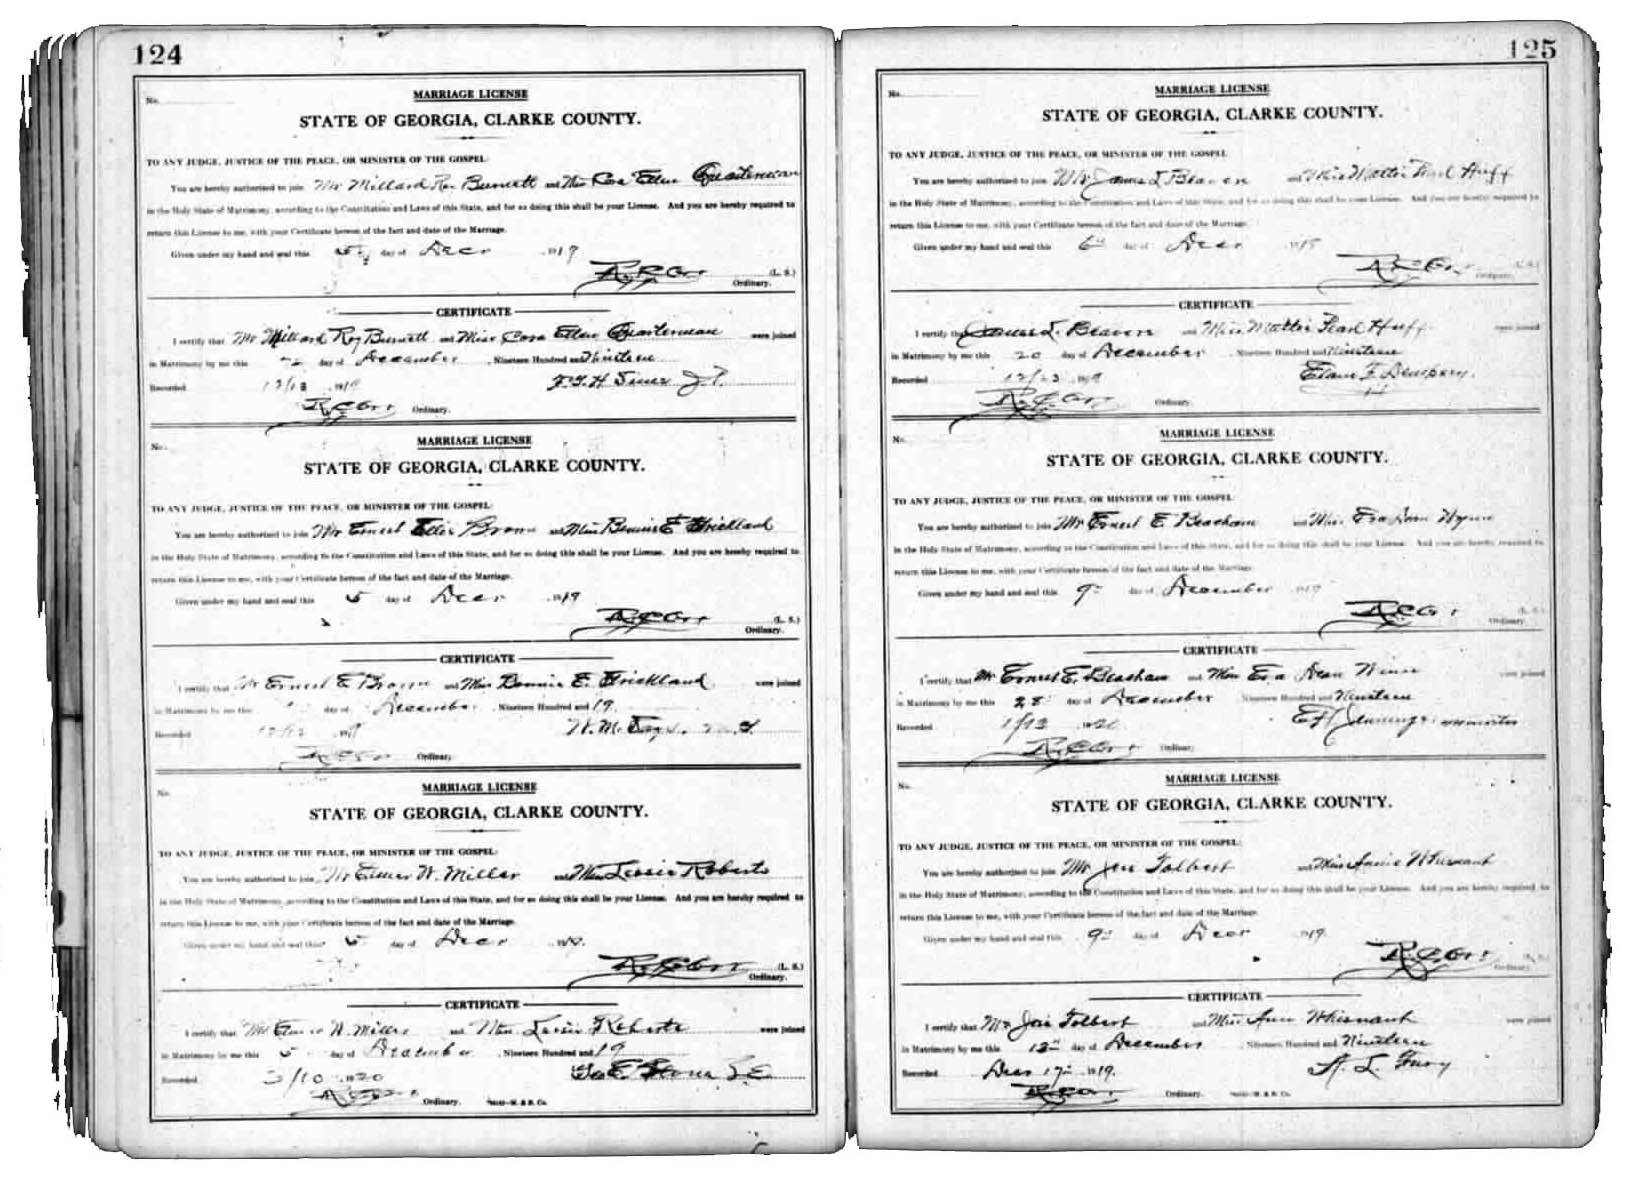 124
No.
MARRIAGE LICENSE
STATE OF GEORGIA, CLARKE COUNTY.
TO ANY JUDGE, JUSTICE OF THE PEACE, OR MINISTER OF THE GOSPEL:
You are hereby authorized to join Mr Millard Roy Burnett and Miss Cora Ellen Quarterman
in the Holy State of Matrimony, according to the Constitution and Laws of this State, and for so doing this shall be your License. And you are hereby required to
return this License to me, with your Certificate hereon of the fact and date of the Marriage.
Given under my hand and seal this 5 day of Decr 1919
R C Orr (L. S.)
Ordinary.
CERTIFICATE
I certify that Mr Millard Roy Burnett and Miss Cora Ellen Quarterman were joined
in Matrimony by me this day of December, Nineteen Hundred and
Recorded 12/13 1919
R C Orr Ordinary.
No.
MARRIAGE LICENSE
STATE OF GEORGIA, CLARKE COUNTY.
TO ANY JUDGE, JUSTICE OF THE PEACE, OR MINISTER OF THE GOSPEL:
You are hereby authorized to join Mr Ernest Ellis Brown and Miss Bonnie E Strickland
in the Holy State of Matrimony, according to the Constitution and Laws of this State, and for so doing this shall be your License. And you are hereby required to
return this License to me, with your Certificate hereon of the fact and date of the Marriage.
Given under my hand and seal this 5 day of Decr 1919
R C Orr (L. S.)
Ordinary.
CERTIFICATE
I certify that Mr Ernest E Brown and Miss Bonnie E. Strickland were joined
in Matrimony by me this day of December, Nineteen Hundred and 19
Recorded
R C Orr Ordinary
No.
MARRIAGE LICENSE
STATE OF GEORGIA, CLARKE COUNTY.
TO ANY JUDGE, JUSTICE OF THE PEACE, OR MINISTER OF THE GOSPEL:
You are hereby authorized to join Mr Elmer W. Miller and Miss Lessie Roberts
in the Holy State of Matrimony, according to the Constitution and Laws of this State, and for so doing this shall be your License. And you are hereby required to
return this License to me, with your Certificate hereon of the fact and date of the Marriage.
Given under my hand and seal this 5 day of Decr 1919.
R C Orr (L. S.)
Ordinary.
CERTIFICATE
I certify that Mr Elmer W. Miller and Miss Roberts were joined
in Matrimony by me this 5 day of December, Nineteen Hundred and 19
Recorded 3/10 1920
R C Orr Ordinary.
125
No.
MARRIAGE LICENSE
STATE OF GEORGIA, CLARKE COUNTY.
TO ANY JUDGE, JUSTICE OF THE PEACE, OR MINISTER OF THE GOSPEL
You are hereby authorized to join Mr James L Beaven and Miss Mattie Pearl Huff
in the Holy State of Matrimony, according to the Constitution and Laws of this State, and for so doing this shall be your License. And you are hereby required to
return this License to me, with your Certificate hereon of the fact and date of the Marriage.
Given under my hand and seal this 6th day of Decr 1919
R C Orr (L. S.)
Ordinary.
CERTIFICATE
I certify that James L. Beaven and Miss Mattie Pearl Huff were joined
in Matrimony by me this 20 day of December, Nineteen Hundred and Nineteen
Recorded 12/23 1919
R. C. Orr Ordinary.
No.
MARRIAGE LICENSE
STATE OF GEORGIA, CLARKE COUNTY.
TO ANY JUDGE, JUSTICE OF THE PEACE, OR MINISTER OF THE GOSPEL:
You are hereby authorized to join Mr Ernest E. Beacham and Miss Eva Wynn
in the Holy State of Matrimony, according to the Constitution and Laws of this State, and for so doing this shall be your License. And you are hereby required to
return this License to me, with your Certificate hereon of the fact and date of the Marriage.
Given under my hand and seal this 9 day of December 1919
R C Orr (L. S.)
Ordinary.
CERTIFICATE
I certify that Mr Ernest E. Beacham and Miss Eva Dean were joined
in Matrimony by me this 28 day of December Nineteen Hundred and Nineteen
Recorded 1/13 1920 E H Jennings minister
R C Orr Ordinary
No.
MARRIAGE LICENSE
STATE OF GEORGIA, CLARKE COUNTY.
TO ANY JUDGE, JUSTICE OF THE PEACE, OR MINISTER OF THE GOSPEL:
You are hereby authorized to join Mr Joe Tolbert and Miss Annie Whisnant
in the Holy State of Matrimony, according to the Constitution and Laws of this State, and for so doing this shall be your License. And you are hereby required to
return this License to me, with your Certificate hereon of the fact and date of the Marriage.
Given under my hand and seal this 9 day of Decr 1919.
R. C. Orr (L. S.)
Ordinary.
CERTIFICATE
I certify that Mr Joe Tolbert and Miss Ann Whisnant were joined
in Matrimony by me this 13th day of December, Nineteen Hundred and Nineteen
Recorded Dec 17 1919.
R C Orr Ordinary.